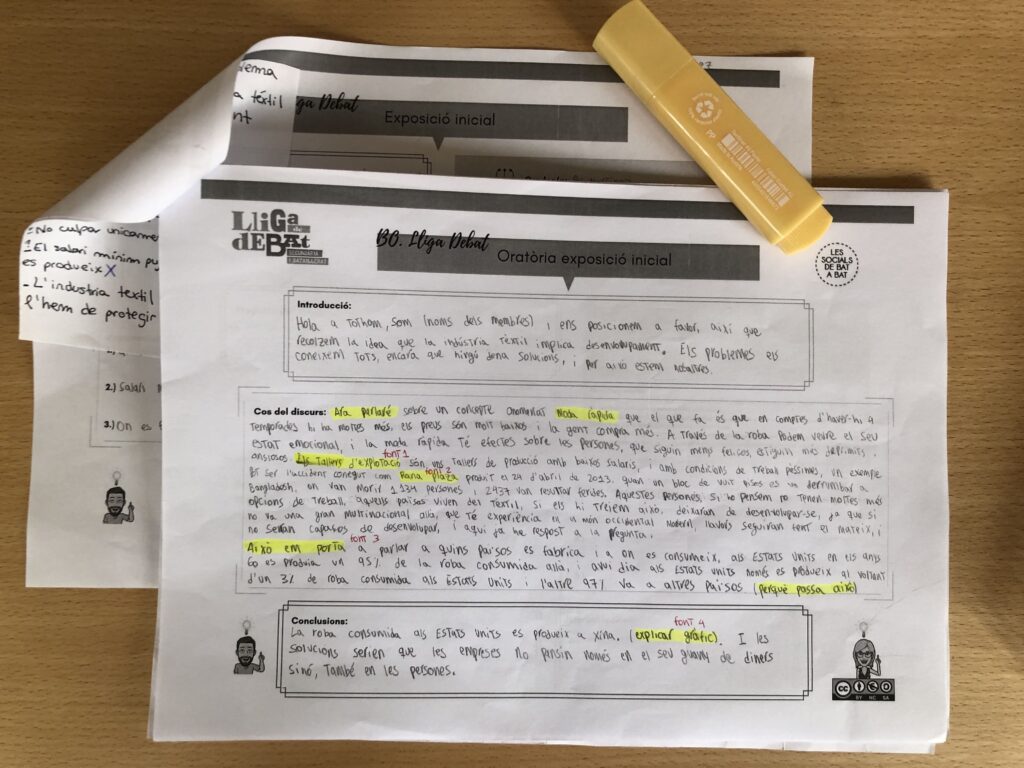 erma
a téxtil
nt
ga Debat
Exposició inicial
- No culpar unicame
El salari mínim pu
es produeix X
- L'industria textil
l'hem de protegir
2.) Salari
3.) On es f
LLiGa
de
dEBAt
SECUNDÀRIA
BO. Lliga Debat
Oratòria exposició inicial
LES
SOCIALS
DE BAT
A BAT
Introducció:
Hola a Tothom, som (noms dels membres) i ens posicionem a favor, així que
recolzem la idea que la indústria tèxtil implica desenvolupament. Els problemes els
coneixem tots, encara que ningú dona solucions, i per això estem nosaltres.
Cos del discurs: Ara parlaré sobre un concepte anomenat moda ràpida que el que fa és que en comptes d'haver-hi 4
temporades hi ha moltes més, els preus són molt baixos i la gent compra més. A través de la roba podem veure el seu
estat emocional, i la moda ràpida té efectes sobre les persones, que siguin menys felices, estiguin més deprimits i
ansiosos. Els Tallers d'explotació són uns tallers de producció amb baixos salaris, i amb condicions de treball pèssimes, un exemple
font 1
font 2
pot ser l'accident conegut com Rana Plaza produït el 24 d'abril de 2013, quan un bloc de vuit pisos es va derrumbar a
Bangladosh, on van morir 1.134 persones i 2437 van resultar ferides. Aquestes persones, si ho pensem no tenen moltes més
opcions de treball, aquells països viuen del tèxtil, si els hi treiem això, deixaran de desenvolupar-se, ja que si
no va una gran multinacional allà, que té experiència en un món occidental modern, llavors seguiran fent el mateix, i
no seran capaços de desenvolupar, i aquí ja he respost a la pregunta.
font 3
Això em porta a parlar a quins països es fabrica i a on es consumeix, als Estats Units en els anys
60 es produïa un 95% de la roba consumida allà, i avui dia als Estats Units només es produeix al voltant
d'un 3% de roba consumida als Estats Units i l'altre 97% va a altres països. (perquè passa això)
Conclusions:
font 4
La roba consumida als Estats Units es produeix a Xina. (explicar gràfic). I les
solucions serien que les empreses no pensin només en el seu guany de diners
sinó, també en les persones.
CC BY NC SA
PP